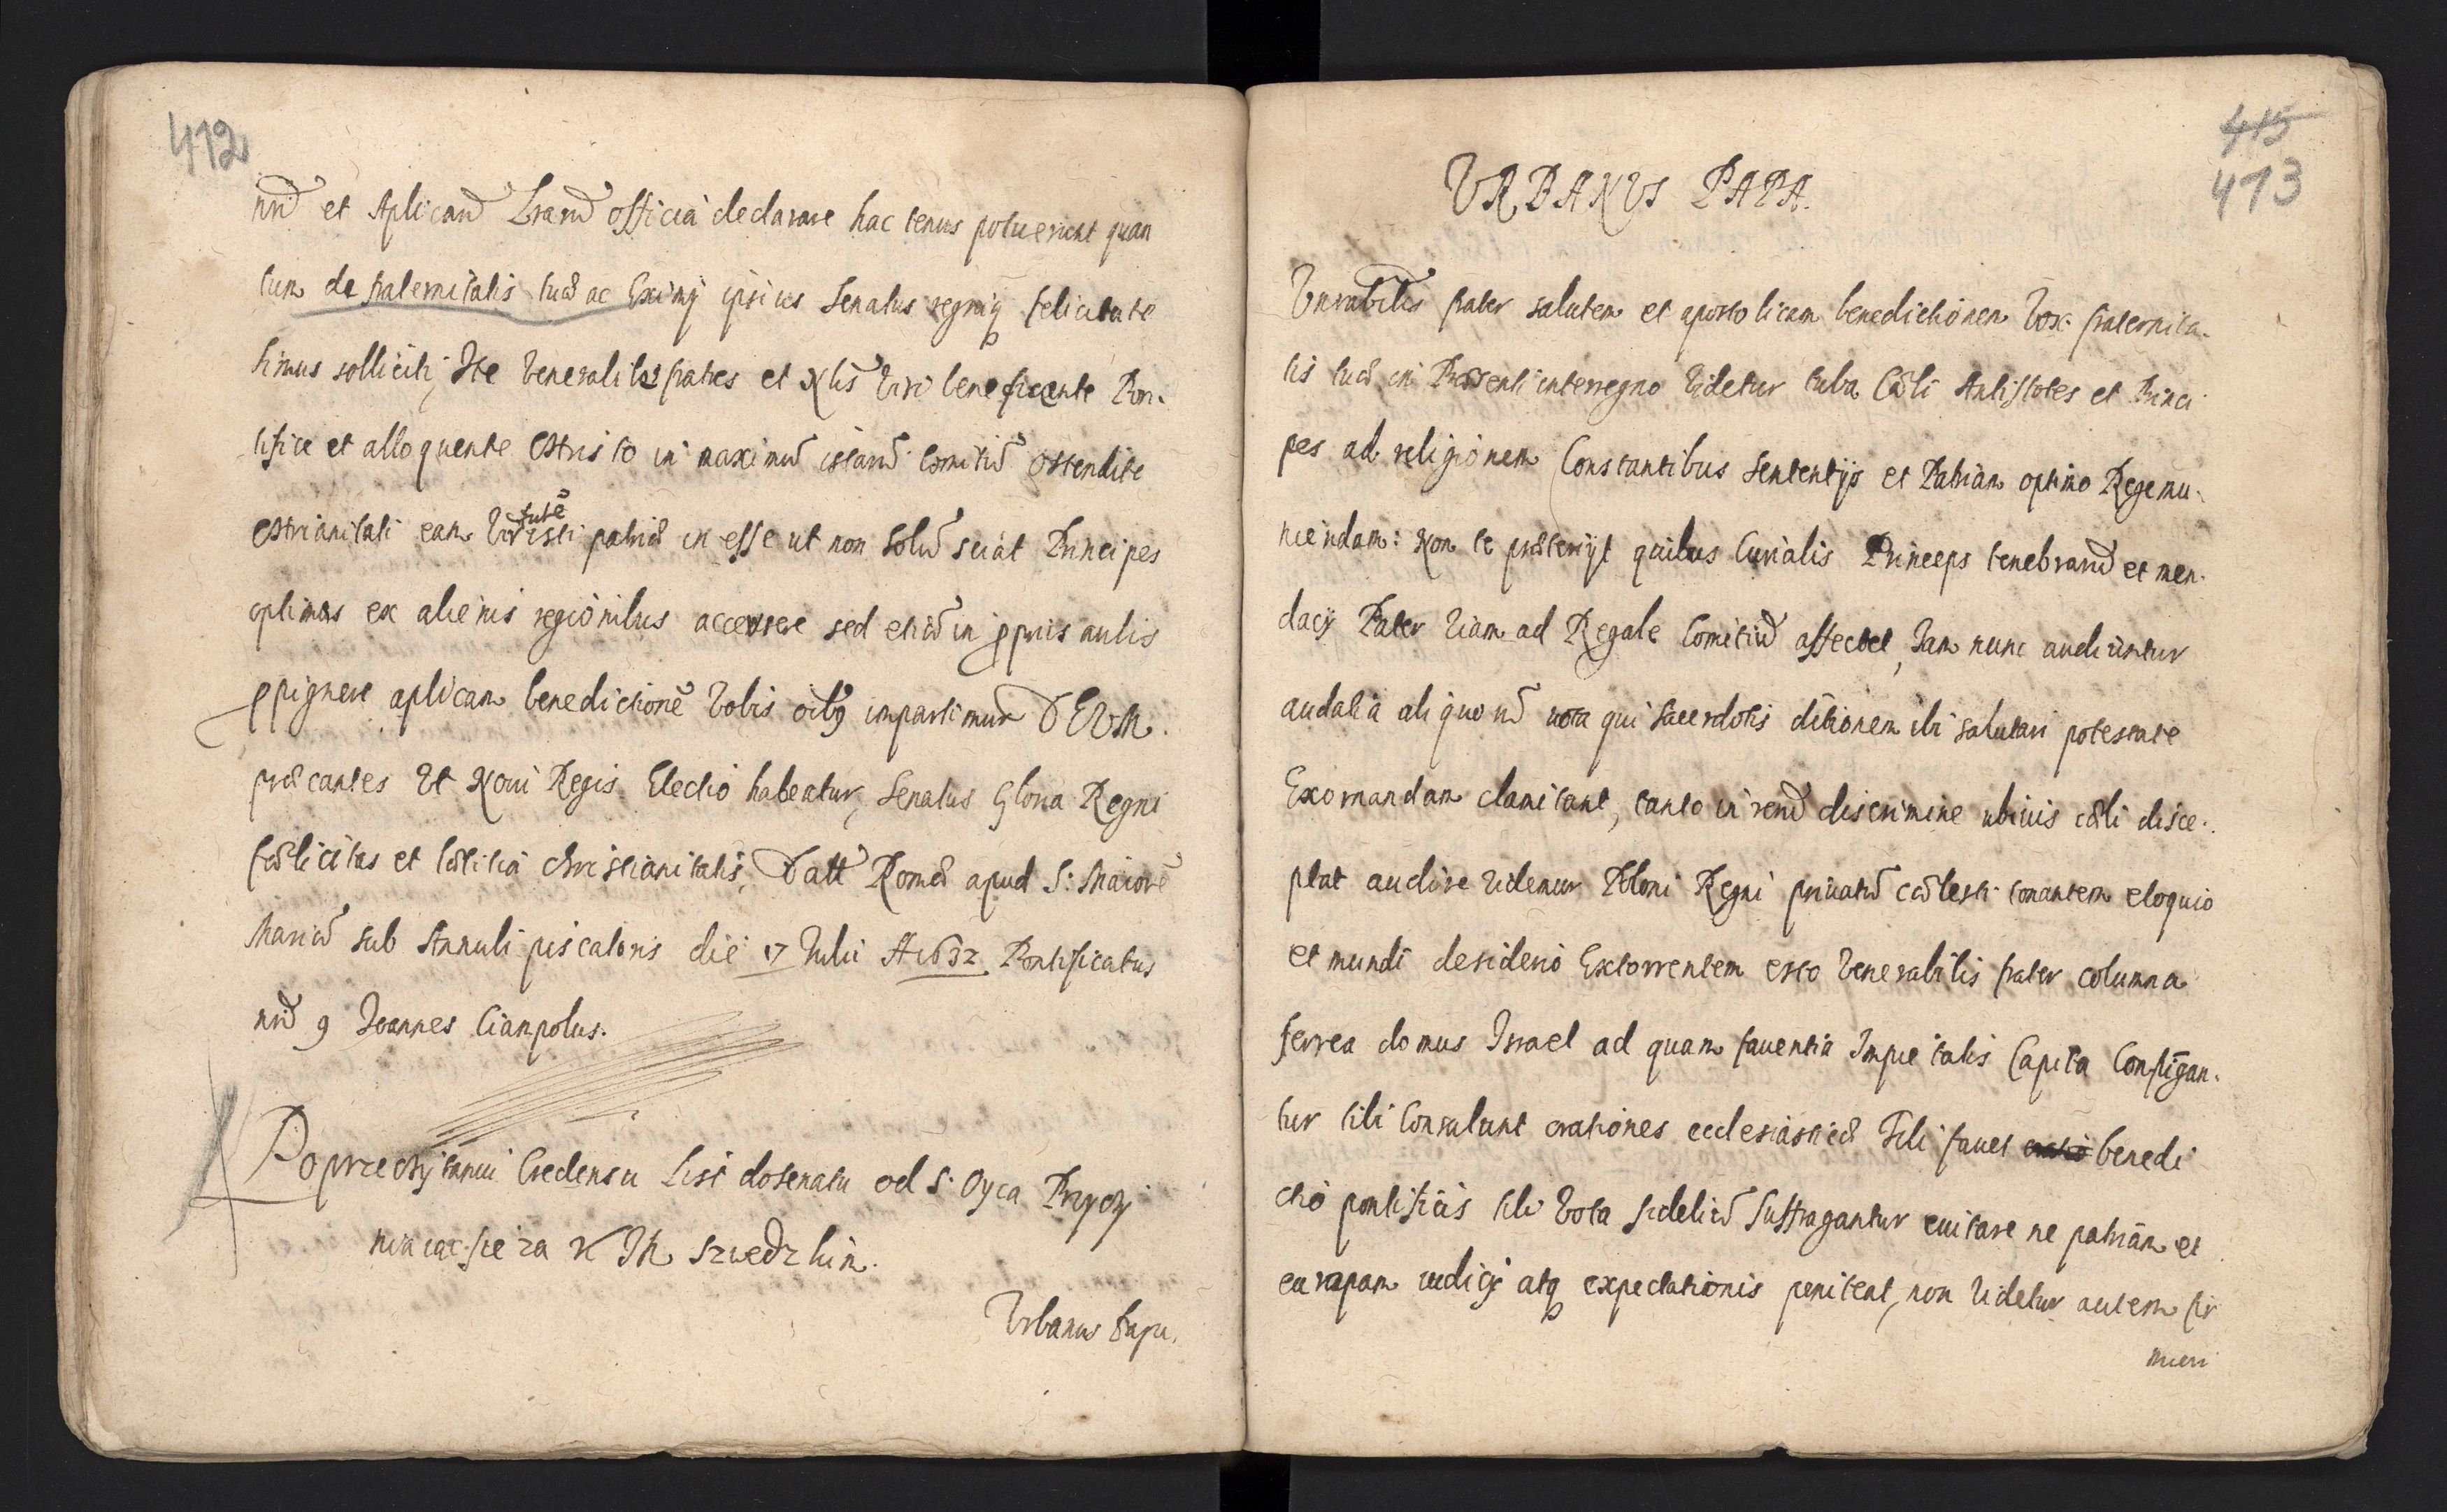 412
nrũ et Aplicarũ Lrarũ officia declarare hac tenus potuerunt quan
tum de fraternitatis tuæ ac Eximij ipsius Senatus regniq felicitate
simus solliciti, Ite Venerabiles fratres et Nlis Viri beneficente Pon-
tifice et alloquente Christo in maximũ istarũ Comitiũ Ostendite
Christianitati eam Virtutẽ isti patriæ in esse ut non solũ sciat Principes
optimos ex alienis regionibus accersere sed etiã in ppriis aulis
ppignere aplicam benedictionẽ Vobis oibq impartimur DEUM.
præcantes Ut Noui Regis Electio habeatur, Senatus Gloria Regni
fælicitas et lætitia christianitatis, Datt Romæ apud S: Maiorẽ
Mariã sub Annuli piscatoris die 17 Iulii A 1632. Pontificatus
nrũ 9 Ioannes Ciampolus.
Poprzeczytaniu Credensu List dosenatu od S. Oyca Przyczy
nia iac sie za K Im Szwedzkim.
Urbanus Papa.
415
413
URBANUS PAPA.
Vnrabilis frater salutem et apostolicam benedictionem Vox fraternita-
tis tuæ in Præsenti interregno Videtur tuba Cæli Antistotes et Princi
pes ad religionem Constantibus Sententijs et Patriam optimo Rege mu-
niendam: Non te præterijt quibus Curialis Princeps tenebrarũ et men-
dacij Pater Viam ad Regale Comitiũ affectet, Iam nunc audiuntur
audatia aliquorũ uota qui sacerdotis ditionem ibi salutari potestate
Exornandam clamitant, tanto in rerũ discrimine ubiuis cæli disce-
ptat audire Videmur Poloni Regni priuatũ cælesti tonantem eloquio
et mundi desiderio Extorrentem esto Venerabilis frater columna
ferrea domus Israel ad quam fauentia Impietatis Capita Confrigan-
tur tibi Consulant orationes ecclesiasticæ Tibi fauet oratio benedi
ctio pontificis tibi Vota fideliũ Suffragantur euitare ne patriam et
europam iudicij atq expectationis peniteat, non Videtur autem fir
mieri